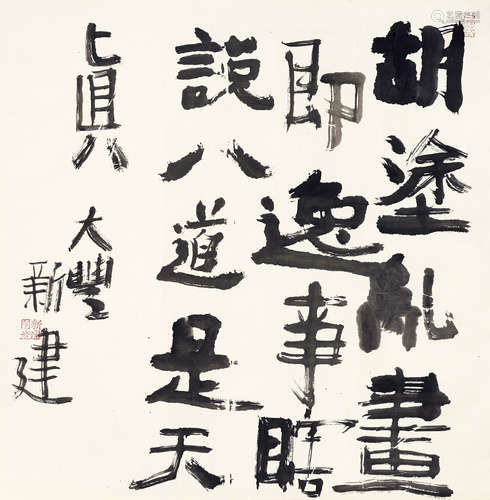 胡塗亂畫
即逸事瞎
說八道是天
真八大豐
新建